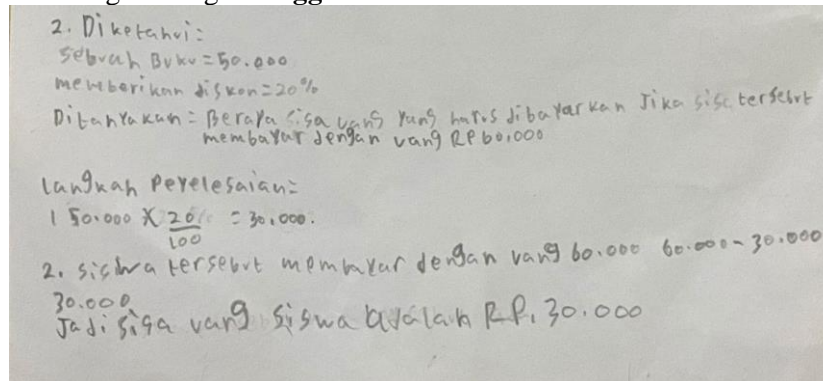 2. Diketahui:
Sebuah Buku = 50.000
memberikan diskon = 20%
Ditanyakan = Berapa sisa uang yang harus dibayarkan Jika sisc tersebut
membayar dengan uang RP 60.000
langkah Peyelesaian =
1 50.000 X 20% = 30.000.
100
2. sisiwa tersebut membayar dengan uang 60.000 60.000 - 30.000
30.000
Jadi siga uang siswa adalah RP. 30.000